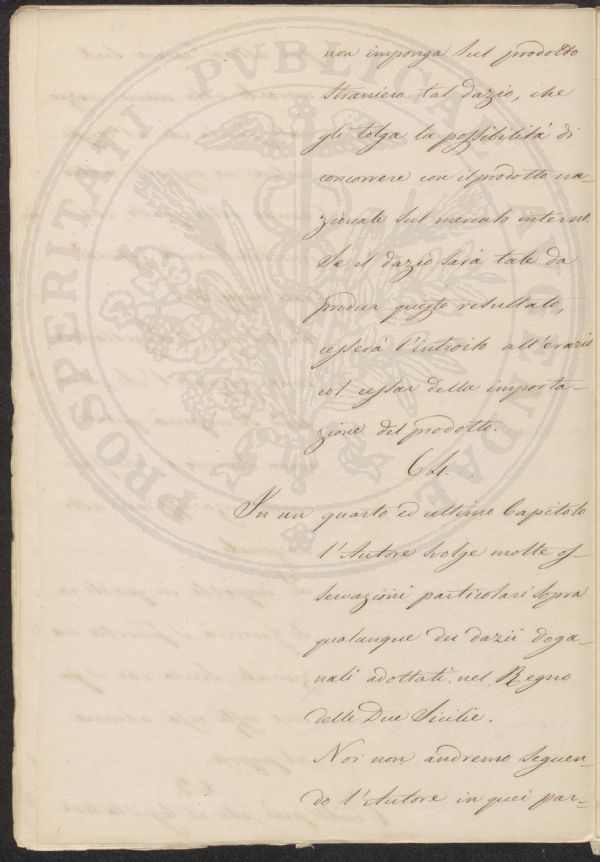 non imponga sul prodotto
straniero tal dazio, che
gli tolga la possibilità di
concorrere con il prodotto na-
zionale sul mercato interno.
Se il dazio sarà tale da
produr questo resultato,
cesserà l'introito all'erario
col cessar della importa-
zione del prodotto.
64.
In un quarto ed ultimo Capitolo
l'Autore svolge molte os-
servazioni particolari sopra
qualunque dei dazii doga-
nali adottati nel Regno
delle Due Sicilie.
Noi non andremo seguen-
do l'Autore in quei par-
PROSPERITATI PVBLICAE